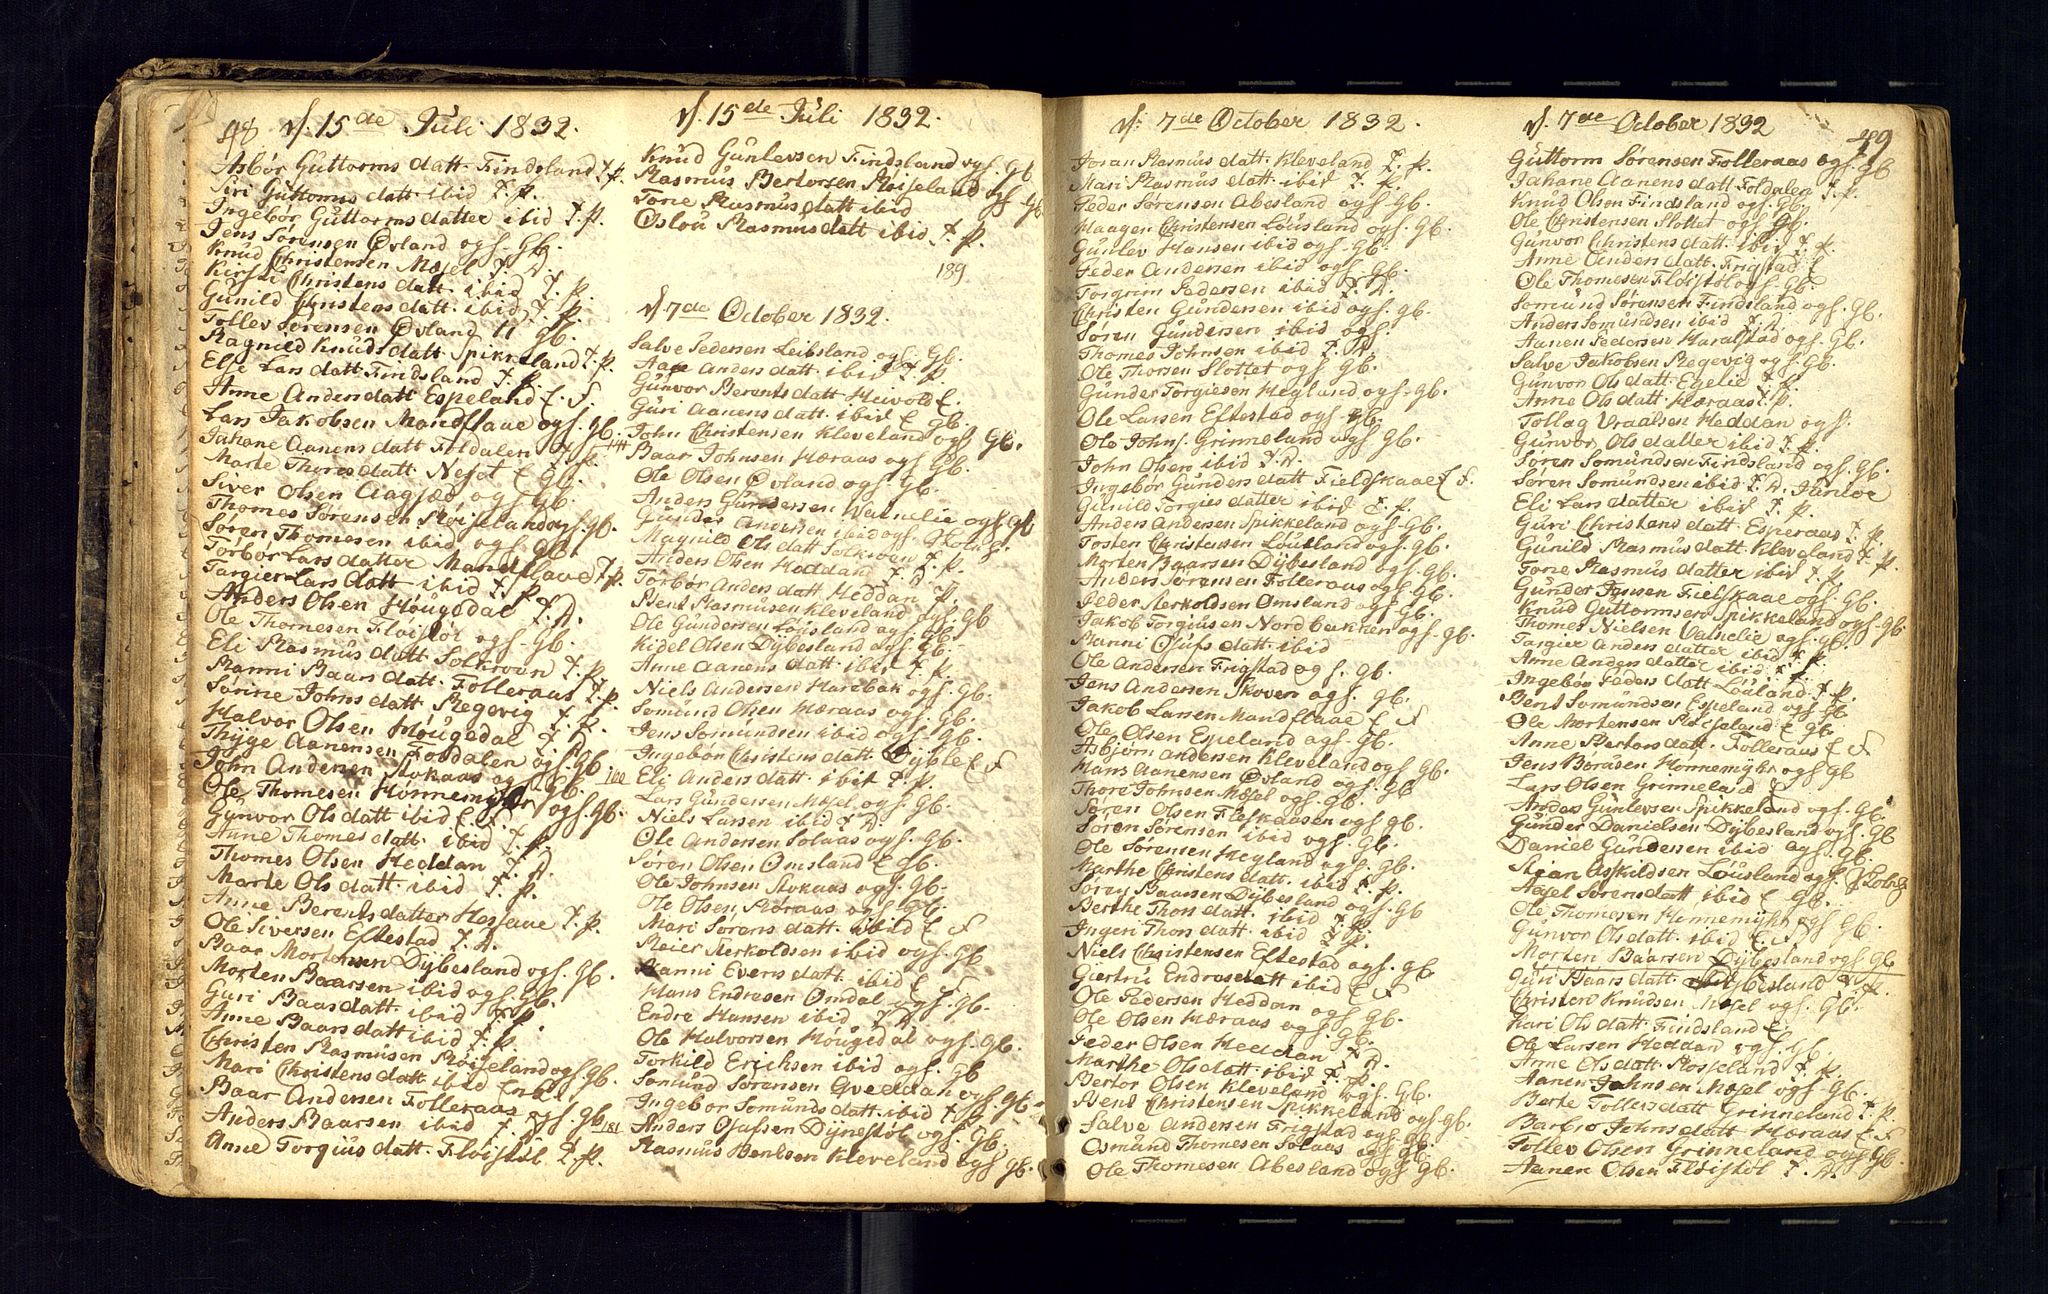 48 d. 15de Juli 1832.
Asbør Guttorms datt. Findsland T. P.
Siri Guttoms datt. ibid T. P.
Ingebør Guttorms datter ibid T. P.
Jens Sørensen Øvland ogs. Gb.
Knud Christensen Mæsel T. D.
Kirsti Christens datt. ibid T. P.
Gunild Christens datt. ibid T. P.
Tollev Sørensen Øvland Gb.
Ragnild Knuds datt Spikkeland T. P.
Else Lars datt Findsland T. P.
Anne Anders datt Espeland E. F.
Lars Jakobsen Mandflaae ogs. Gb.
Jahane Aanens datt Foldalen T. P.
Marte Thores datt. E Gb.
Siver Olsen Aagjæd ogs Gb.
Thomes Sørensen Røiseland ogs. Gb.
Søren Thomesen ibid ogs Gb.
Torbør Lars datter Mandflaae T. P.
Targier Lars datt ibid T. P.
Anders Olsen Hougedal T. D.
Ole Thomesen Fløistøl ogs. Gb.
Eli Rasmus datt Solkroen T. P.
Ranni Baars datt. Folleraas T. P.
Sønne Johns datt Regevig T. P.
Halvor Olsen Hougedal T. D.
Thÿge Aanensen Fodalen ogs. Gb.
John Andersen Stokaas ogs Gb. 100
Ole Thomesen Honnemyhr ogs. Gb.
Gunvor Ols datt ibid E F
Anne Thomes datt. ibid T. P.
Thomes Olsen Heddan T. D.
Marte Ols datt. ibid T. P.
Anne Berents datter Hesaae T. P.
Ole Siversen Eftestad T. D.
Baar Mortensen Dybesland ogs. Gb.
Morten Baarsen ibid ogs. Gb.
Guri Baars datt. ibid T. P.
Anne Baars datt ibid T. P.
Christen Rasmusen Røiseland ogs Gb.
Mari Christens datt ibid
Baar Andersen Folleraas ogs. Gb. 181
Anders Baarsen ibid T. D.
Anne Torgius datt. Fløistøl T. P.
d. 15de Juli 1832.
Knud Gunlevsen Findsland ogs. Gb
Rasmus Bertorsen Røiseland ogs Gb.
Torie Rasmus datt ibid
Øslou Rasmus datt ibid T. P.
189.
d 7de October 1832.
Salve Pedersen Leibsland ogs. Gb.
Aase Anders datt. ibid T. P.
Gunvor Berents datt Heivold E.
Guri Aanens datt. ibid E Gb.
John Christensen Kleveland ogs Gb.
Baar Johnsen Hæraas ogs Gb.
Ole Olsen Øvland ogs. Gb.
Anders Gundersen Valnelie ogs Gb
Gunder Andersen ibid ogs.
Magnild Ols datt Solkroen T. P.
Anders Olsen Heddan T. D
Torbør Anders datt Heddan T. P.
Bent Rasmusen Kleveland ogs Gb
Ole Gundersen Lousland ogs Gb.
Kidel Olsen Dybesland ogs Gb
Anne Aanens datt ibid T. P
Niels Andersen Harebak ogs. Gb.
Somund Olsen Hæraas ogs. Gb.
Jens Somundsen ibid ogs. Gb.
Ingebør Christens datt. E F
Eli Anders datt. ibid T. P.
Lars Gundersen Mæsel ogs. Gb.
Niels Larsen ibid T. D.
Ole Andersen Solaas ogs. Gb.
Søren Olsen Omsland E Gb.
Ole Johnsen Stokaas ogs. Gb.
Ole Olsen Røraas ogs. Gb.
Mari Sørens datt. ibid E F
Reier Terkoldsen ibid ogs. Gb
Ranni Evens datt ibid E F.
Hans Endresen Omdal ogs. Gb.
Endre Hansen ibid T. D.
Ole Halvorsen Hougedal ogs. Gb.
Torkild Ericksen ibid ogs. Gb
Somund Sørensen Qveddan ogs. Gb.
Ingebør Somunds datt. ibid T. P
Anders Osufsen Dynestøl ogs. Gb.
Rasmus Bentsen Kleveland ogs Gb.
d. 7de October 1832.
Joran Rasmus datt. Kleveland T. P.
Mari Rasmus datt. ibid T. P.
Peder Sørensen Abesland ogs. Gb.
Haagen Christensen Lousland ogs. Gb.
Gunlev Hansen ibid ogs. Gb.
Peder Andersen ibid ogs. Gb.
Torgrim Pedersen ibid T. D.
Christen Gundersen ibid ogs. Gb.
Søren Gundersen ibid ogs.
Thomes Johnsen ibid T. D
Ole Thorsen Slottet ogs. Gb.
Gunder Torgiesen Heglund ogs. Gb.
Ole Larsen Eftestad ogs. Gb.
Ole Johns. Grinneland ogs. Gb.
John Olsen ibid T. D.
Ingebør Gunders datt Fieldskaae E F.
Gunild Torgies datter ibid T. P.
Anders Andersen Spikkeland ogs. Gb.
Tosten Christensen Lousland ogs. Gb.
Morten Baarsen Dybesland ogs. Gb.
Anders Sørensen Folleraas ogs. Gb.
Peder Terkoldsen Omsland ogs. Gb.
Jakob Torgiusen Nordbakken ogs. Gb.
Ranni Osufs datt ibid
Ole Andersen Frigstad ogs. Gb.
Jens Andersen Skoven ogs. Gb.
Jakob Larsen Mandflaae E F
Ole Olsen Espeland ogs. Gb.
Asbjørn Andersen Kleveland ogs. Gb.
Hans Aanensen Øvland ogs Gb
Thore Johnsen Mæsel ogs. Gb.
Søren Olsen Fleskaasen ogs Gb.
Søren Sørensen ibid ogs. Gb.
Ole Sørensen Hegland ogs. Gb.
Marthe Christens datt. ibid T. P.
Søren Baarsen Dybesland ogs. Gb
Berthe Thors datt. ibid T. P.
Ingeri Thors datt. ibid T. P.
Niels Christensen Eftestad ogs. Gb
Giertru Endres datt ibid E F
Ole Pedersen Heddan ogs. Gb.
Ole Olsen Hæraas ogs Gb.
Peder Olsen Heddan T. D.
Marthe Ols datt. ibid T. P.
Bertor Olsen Kleveland ogs. Gb.
Bent Christensen Spikkeland ogs. Gb.
Salve Andersen Frigstad ogs. Gb.
Osmund Thomesen Solaas ogs Gb.
Ole Thomesen Abesland ogs Gb.
d. 7de October 1832 49
Guttorm Sørensen Folleraas ogs. Gb
Jahane Aanens datt Foldalen T. P.
Knud Olsen Findsland ogs. Gb.
Ole Christensen Slottet ogs. Gb.
Gunvor Christens datt. ibid T. P.
Anne Anders datt. Frigstad E
Ole Thomesen Fløistøl ogs. Gb.
Somund Sørensen Findsland ogs. Gb.
Anders Somundsen ibid T. D.
Aanen Pedersen Haralstad ogs. Gb.
Salve Jakobsen Regevig ogs. Gb.
Gunvor Ols datt. Egelid T. P.
Anne Ols datt. Hæraas T. P.
Tollag Vraalsen Heddan ogs.
Gunvor Ols datter ibid T. P.
Søren Somundsen Findsland ogs. Gb.
Søren Somundsen ibid T. D. Junior
Eli Lars datter ibid T. P
Guri Christens datt. Esperaas T. P.
Gunild Rasmus datt Kleveland T. P
Torie Rasmus datter ibid T. P.
Gunder Fielskaae ogs. Gb.
Knud Guttormsen Spikkeland ogs. Gb.
Thomes Nielsen Valnelie ogs. Gb.
Targier Anders datter ibid T. P.
Anne Anders datter ibid T. P.
Ingebør Peders datt Louland T. P
Bent Somundsen Espeland ogs Gb
Ole Mortensen Røiseland E Gb.
Anne Bertors datt. Folleraas E F
Jens Boraasen Honnemyhr ogs Gb
Lars Olsen Grimeland E
Anders Gunlevsen Spikkeland ogs. Gb.
Gunder Danielsen Dybesland ogs. Gb
Daniel Gundersen ibid ogs. Gb.
Stian Askildsen Lousland ogs.
Axsel Sørens datt ibid E Gb.
Ole Thomesen Honnemyhr ogs. Gb.
Gunvor Ols datt. ibid E F
Morten Baarsen Dybesland ogs Gb
Guri Baars datt. Dybesland T. P.
Christen Knudsen Mæsel ogs. Gb.
Kari Ols datt. Findsland E
Ole Larsen Heddan ogs. Gb.
Anne Ols datt Røiseland T. P.
Aanen Johnsen Mæsel ogs. Gb.
Berte Tollevs datt Grinneland T. P.
Barbro Johns datt Hæraas E F
Tollev Olsen Grinneland ogs Gb
Aanen Olsen Fløistøl T. D.